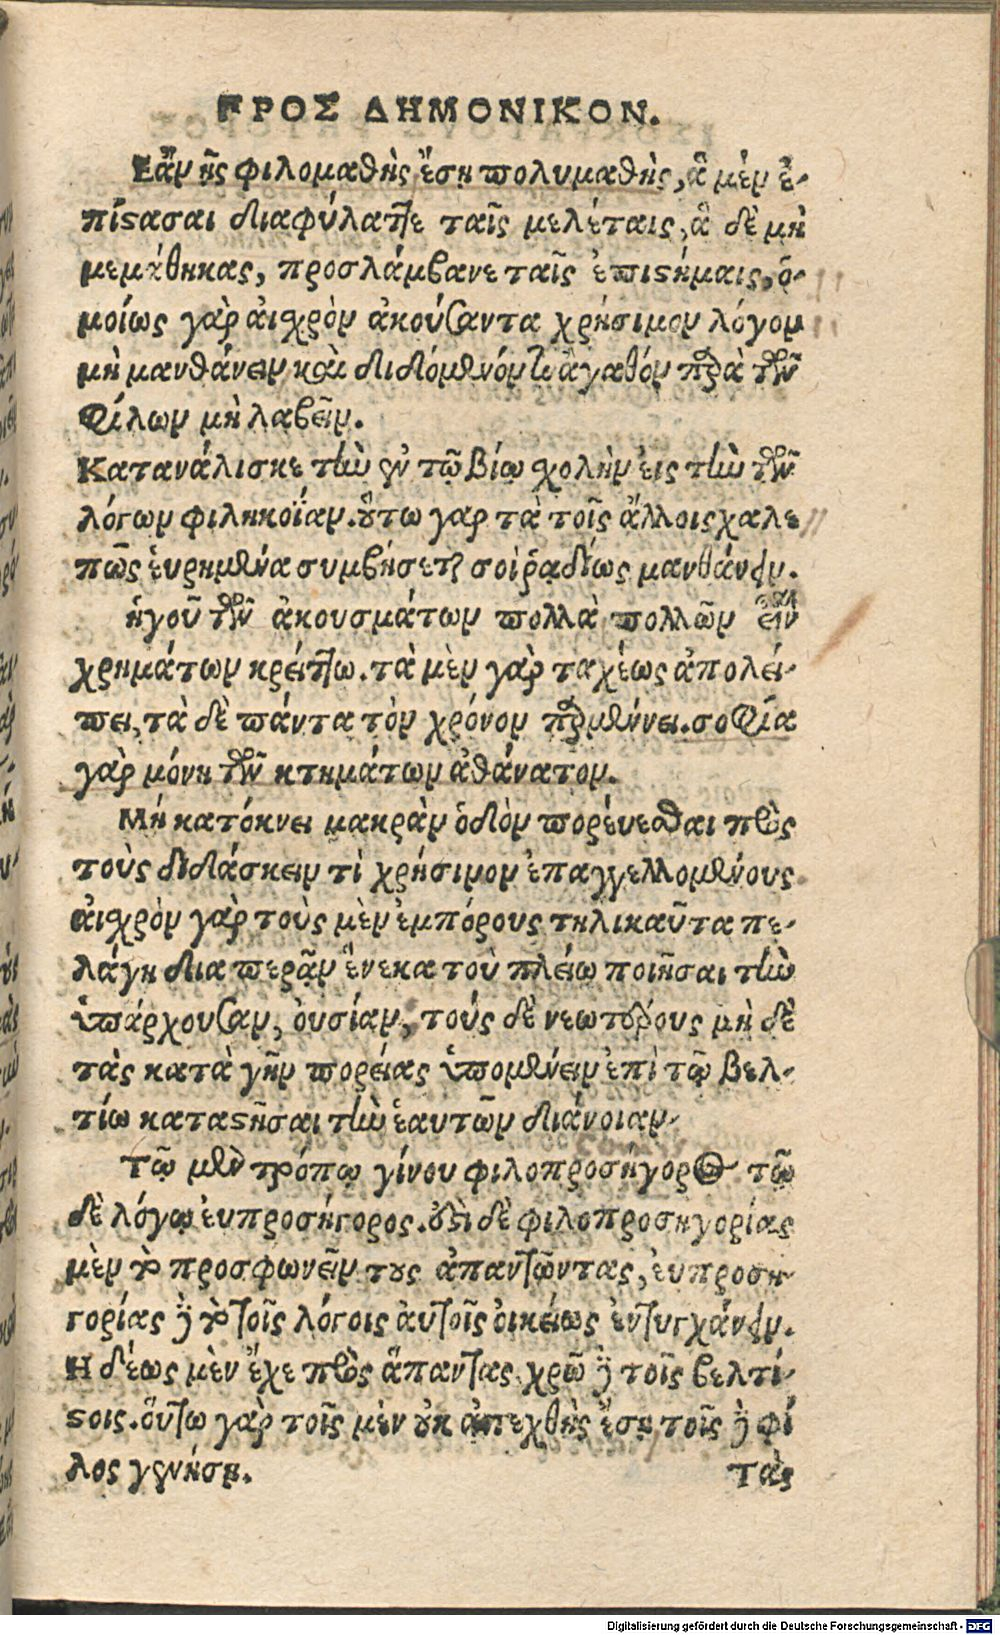 ΠΡΟΣ ΔΗΜΟΝΙΚΟΝ.
Εὰν ᾖς φιλομαθὴς ἔσῃ πολυμαθὴς, ἃ μὲν ἐ-
πίϛασαι διαφύλατ]ε ταῖς μελέταις, ἃ δὲ μὴ
μεμάθηκας, προσλάμβανε ταῖς ἐπιϛήμαις, ὁ-
μοίως γὰρ ἀιχρὸν ἀκούσαντα χρήσιμον λόγον
μὴ μανθάνειν καὶ διδιόμενόν τι ἀγαθόν παρὰ τῶν
φίλων μὴ λαβεῖν.
Κατανάλισκε τὴν ἐν τῷ βίῳ χολὴν ἐις τὴν τῶν
λόγων φιληκοΐαν. ὅυτω γαρ τὰ τοῖς ἄλλοις χαλε
πῶς ἑυρημένα συμβήσεται σοὶ ῥαδίως μανθάνειν.
ἡγοῦ τῶν ἀκουσμάτων πολλὰ πολλῶν εἶναι
χρημάτων κρείτ]ω. τὰ μὲν γὰρ ταχέως ἀπολεί-
πει, τὰ δὲ πάντα τὸν χρόνον παραμένει. σοφία
γὰρ μόνη τῶν κτημάτων ἀθάνατον.
Μή κατόκνει μακρὰν ὁδιὸν πορέυεσθαι πρὸς
τοὺς διδάσκειν τὶ χρήσιμον ἐπαγγελλομένους
ἀιχρὸν γὰρ τοὺς μὲν ἐμπόρους τηλικαῦτα πε-
λάγη δια περᾷν ἕνεκα τοῦ πλείω ποιῆσαι τὴν
ὑπάρχουσαν, ὀυσίαν, τούς δὲ νεωτέρους μὴ δὲ
τὰς κατὰ γῆν πορείας ὑπομένειν ἐπὶ τῷ βελ-
τίω καταϛῆσαι τὴν ἑαυτῶν διάνοιαν.
Τῷ μὲν τρόπῳ γίνου φιλοπροσήγορος τῷ
δὲ λόγῳ ἐυπροσήγορος. ἔϛι δὲ φιλοπροσηγορίας
μὲν τὸ προσφωνεῖν τȣς ἀπαντῶντας, ἐυπροση-
γορίας δὲ τὸ τοῖς λόγοις ἀυτοῖς ὀικείως ἐντυγχάνειν.
Ηδέως μὲν ἔχε πρὸς ἅπαντας. χρῶ δὲ τοῖς βελτί-
ϛοις. ὅυτω γὰρ τοῖς μὲν ȣκ ἀπεχθὴς ἔσῃ τοῖς δὲ φί
λος γενήσῃ. τὰς
Digitalisierung gefördert durch die Deutsche Forschungsgemeinschaft - DFG